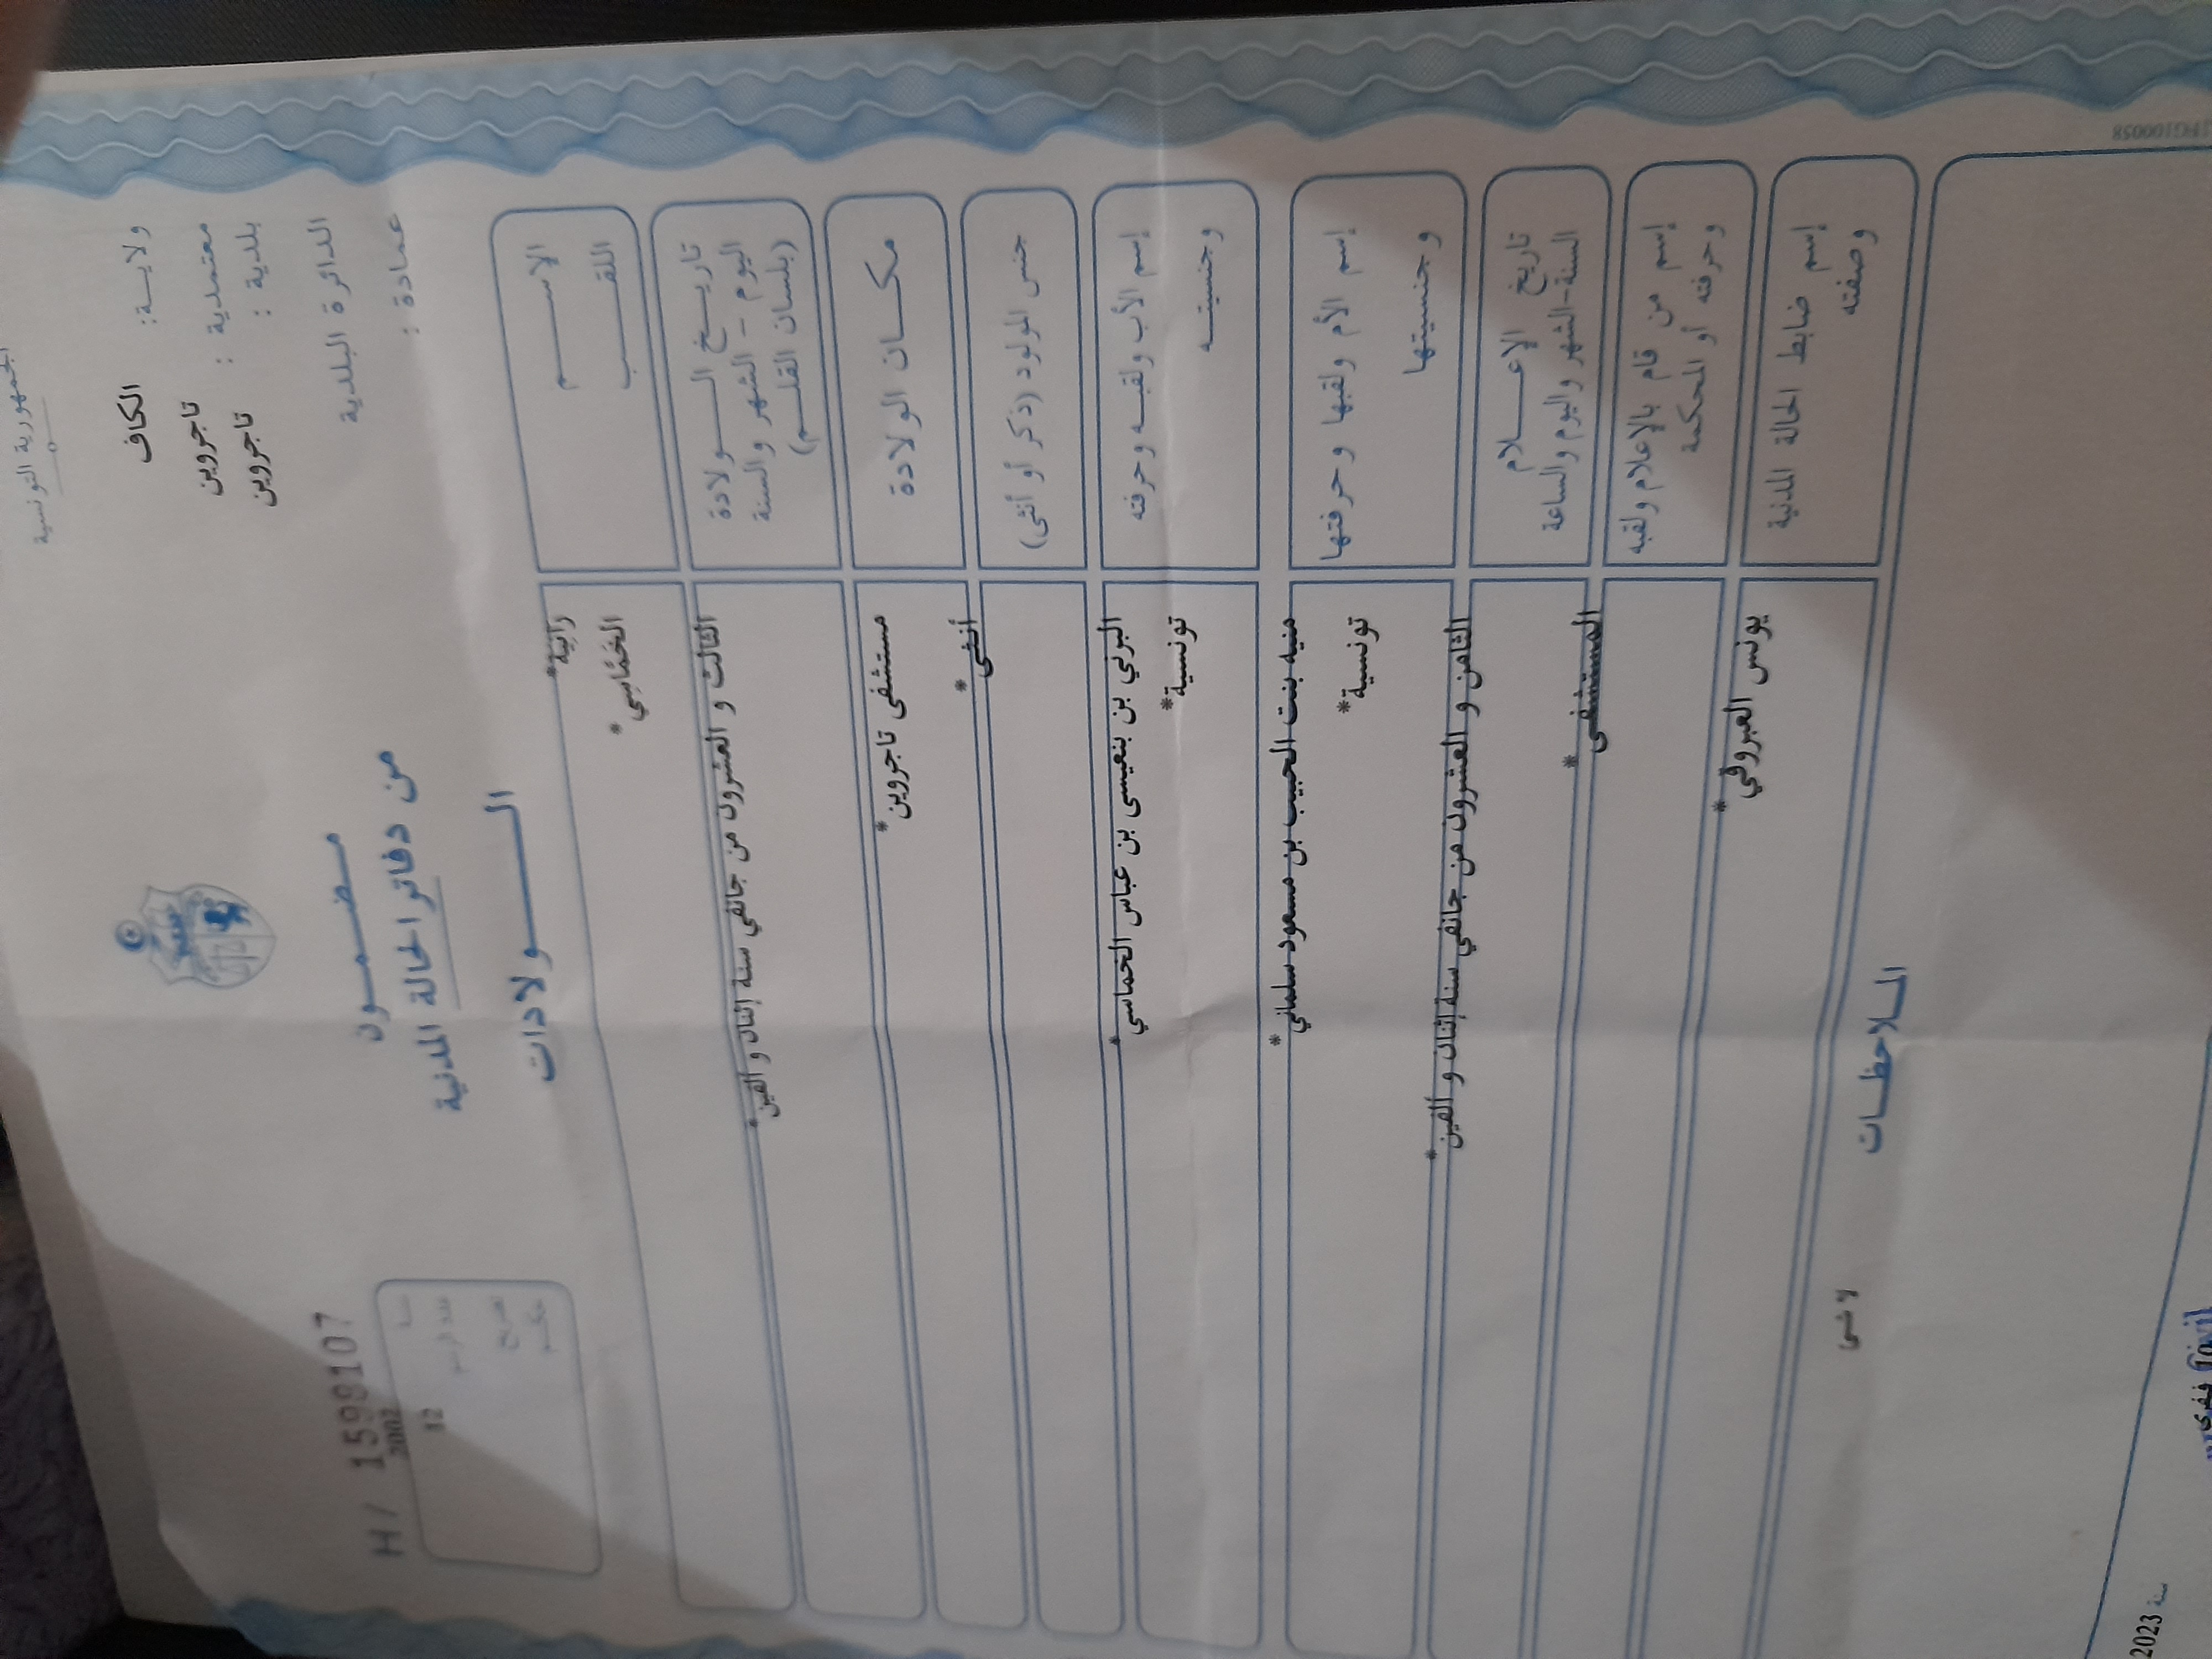 الجمهورية التونسية
ولايـــة: الكاف
معتمدية : تاجروين
بلدية : تاجروين
الدائرة البلدية
عمادة :
مـضـمــون
من دفاتر الحالة المدنية
الــــولادات
H/ 15998107
2002
عدد الرسم 12
الإســــم رانية*
اللقــــب الخَمَّاسِي*
تاريــخ الـــولادة
اليوم - الشهر والسنة
(بلسان القلــم)
الثالث و العشرون من جانفي سنة إثنان و ألفين*
مكـــان الولادة مستشفى تاجروين*
جنس المولود (ذكر أو أنثى) أنثى*
إسم الأب ولقبـه وحرفته البرني بن بنعيسى بن عباس الخماسي*
وجنسيتــه تونسية*
إسم الأم ولقبها وحرفتها منيه بنت الحبيب بن مسعود سلماني*
وجنسيتها تونسية*
تاريخ الإعــــلام
السنة-الشهر واليوم والساعة
الثامن و العشرون من جانفي سنة إثنان و ألفين*
إسم من قام بالإعلام ولقبه
وحرفته أو المحكمة
المستشفى*
إسم ضابط الحالة المدنية
وصفته
يونس العبروقي*
المـلاحظـــات
لا شئ
سنة 2023